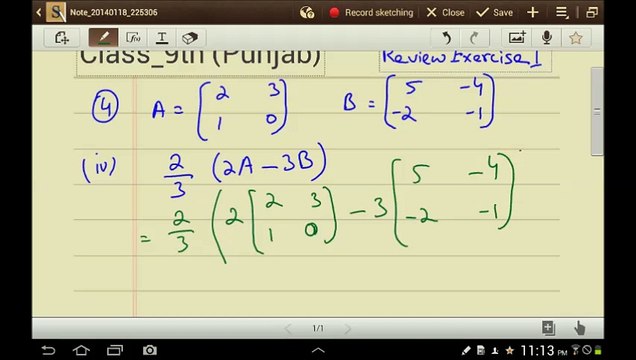 Note_20140118_225306
Record sketching
Close
Save
Class_9th (Punjab)
Review Exercise 1
(4) A = [2 3 B = [5 -4
1 0] -2 -1]
(iv) 2/3 (2A - 3B)
= 2/3 (2 [2 3 - 3 [5 -4
1 0] -2 -1]
1/1
11:13 PM